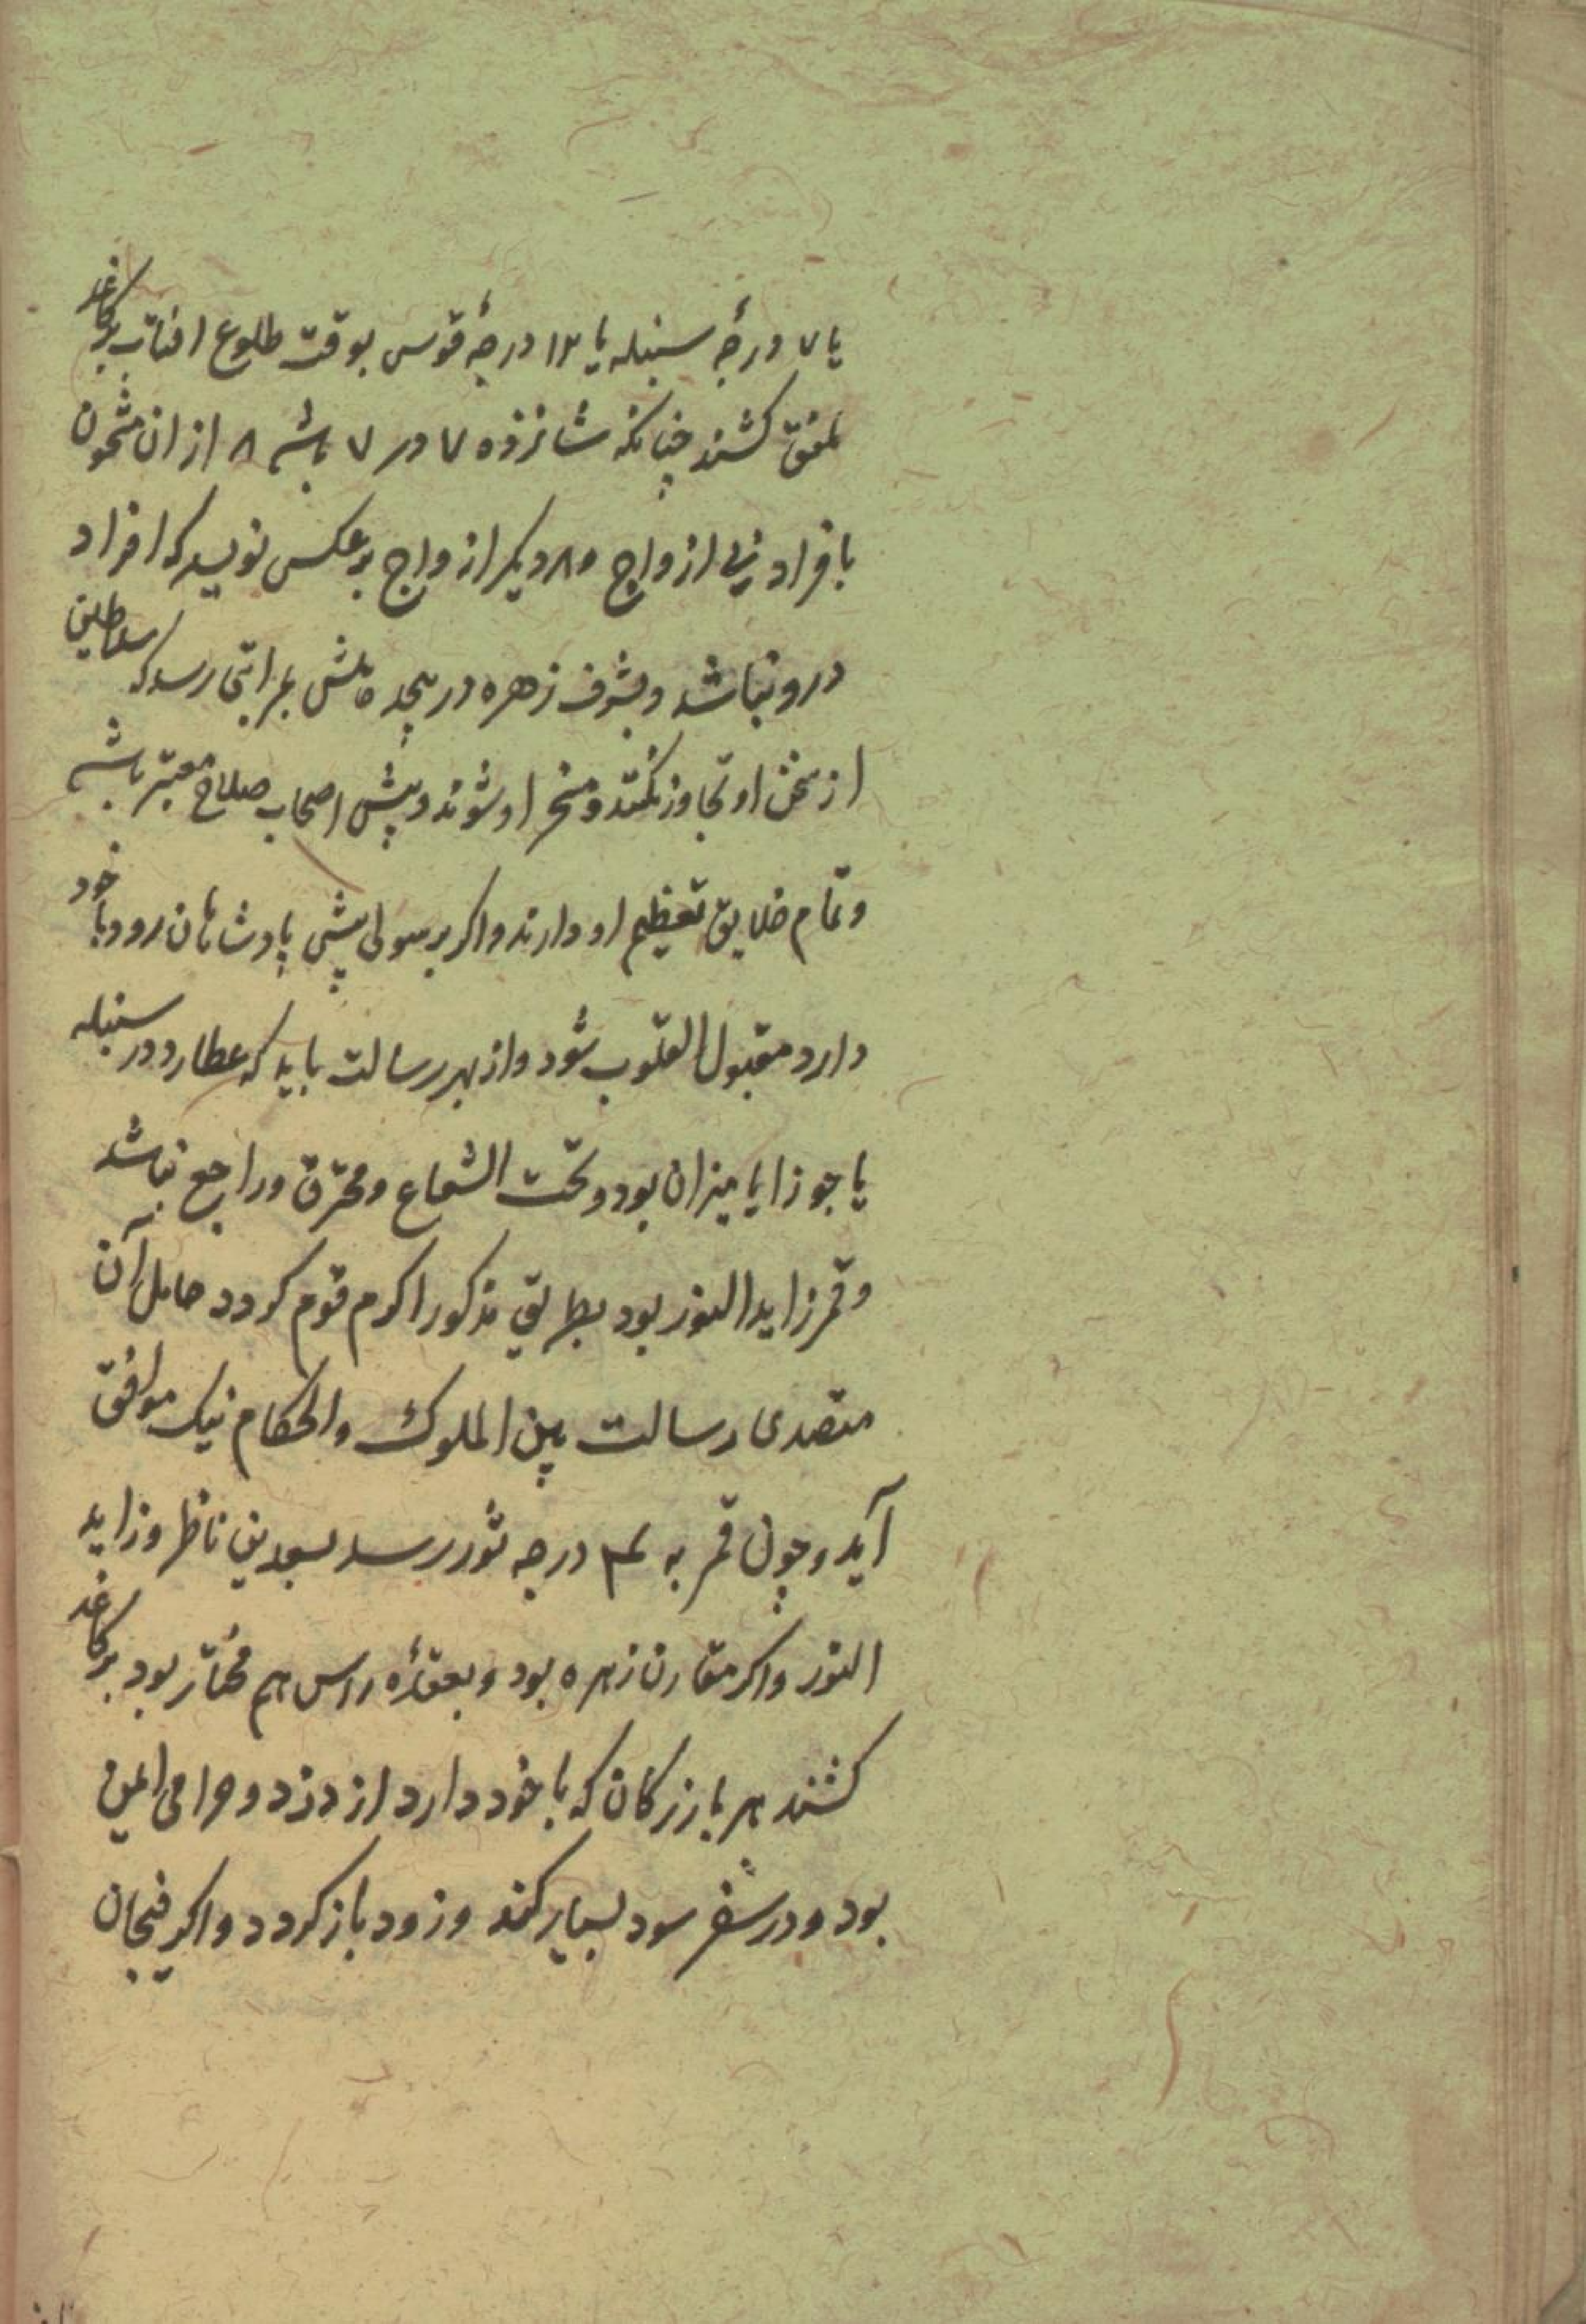 یا ۷ درجهٔ سنبله یا ۱۳ درجهٔ قوس بوقت طلوع افتاب بر کاغذ
کشند چنانکه شانزده ۷ در ۷ باشد ۸ از ان مشحون
بافراد ازواج و ۸ دیکر ازواج برعکس نویسد که افراد
درو نباشد وبشرف زهره در رسد که سلاطین
از سخن او تجاوز نکنند ومسخر او شوند وپیش اصحاب صلاح معتبر باشد
وتمام خلایق تعظیم او دارند واکر برسولی پیش پادشاهان رود وبا خود
دارد مقبول القلوب شود واز بهر رسالت باید که عطارد در سنبله
یا جوزا یا میزان بود وتحت الشعاع ومحترق وراجع نباشد
وقمر زاید النور بود بطریق مذکور اکرم قوم کردد حامل آن
متصدی رسالت بین الملوک والحکام نیک موافق
آید وچون قمر به درجه ثور رسد بسعدین ناظر وزاید
النور واکر مقارن زهره بود وبعقدهٔ راس هم مختار بود بر کاغذ
کشند هر بازرکان که با خود دارد از دزد وحرامی ایمن
بود ودر سفر سود بسیار کند وزود باز کردد واکر فنجان